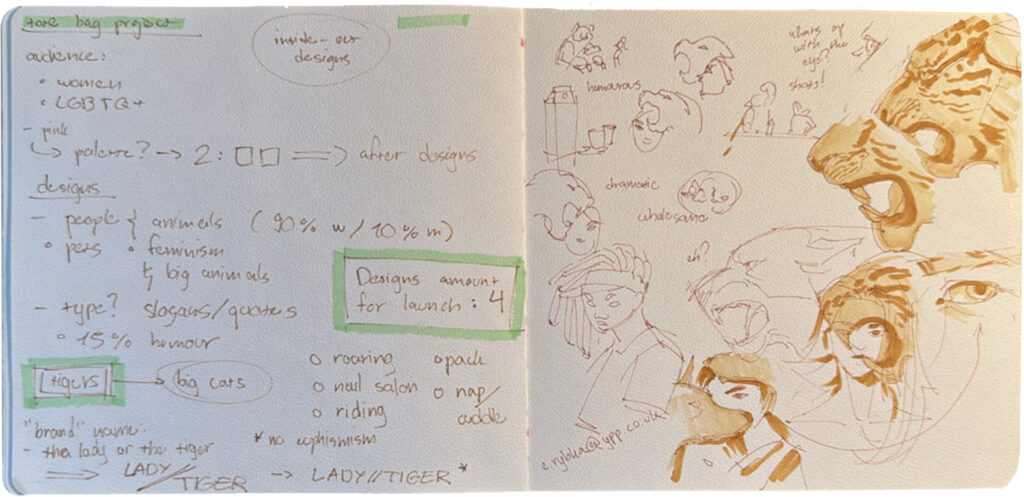 tote bag project
inside-out
designs
audience:
• women
• LGBTQ+
- pink
↳ palette? → 2: □□ ⟹ after designs
designs
- people & animals (90% w/10% m)
• pets • feminism
& big animals
- type? slogans/quotes
• 15% humour
Designs amount
for launch: 4
tigers → big cats
o roaring o pack
o nail salon o nap/
o riding cuddle
"brand" name:
- the lady or the tiger
⟹ LADY//TIGER → LADY//TIGER*
* no euphismism
humourous
whats up
with the
eye?
shots!
dramatic
wholesome
eh?
e.rybka@ypp.co.uk